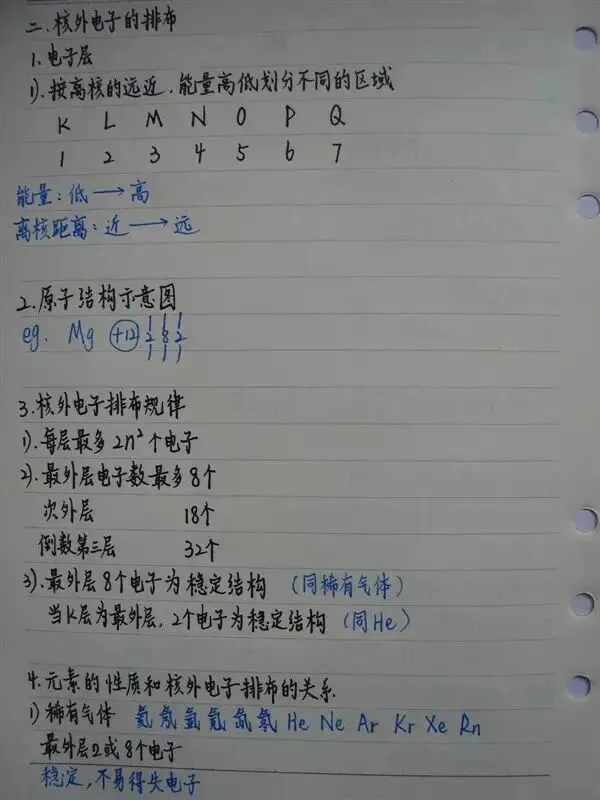 二.核外电子的排布
1.电子层
1).按离核的远近.能量高低划分不同的区域
K L M N O P Q
1 2 3 4 5 6 7
能量:低→高
离核距离:近→远
2.原子结构示意图
eg. Mg +12 2 8 2
3.核外电子排布规律
1).每层最多2n²个电子
2).最外层电子数最多8个
次外层 18个
倒数第三层 32个
3).最外层8个电子为稳定结构 (同稀有气体)
当K层为最外层,2个电子为稳定结构 (同He)
4.元素的性质和核外电子排布的关系.
1)稀有气体 氦氖氩氪氙氡 He Ne Ar Kr Xe Rn
最外层2或8个电子
稳定,不易得失电子